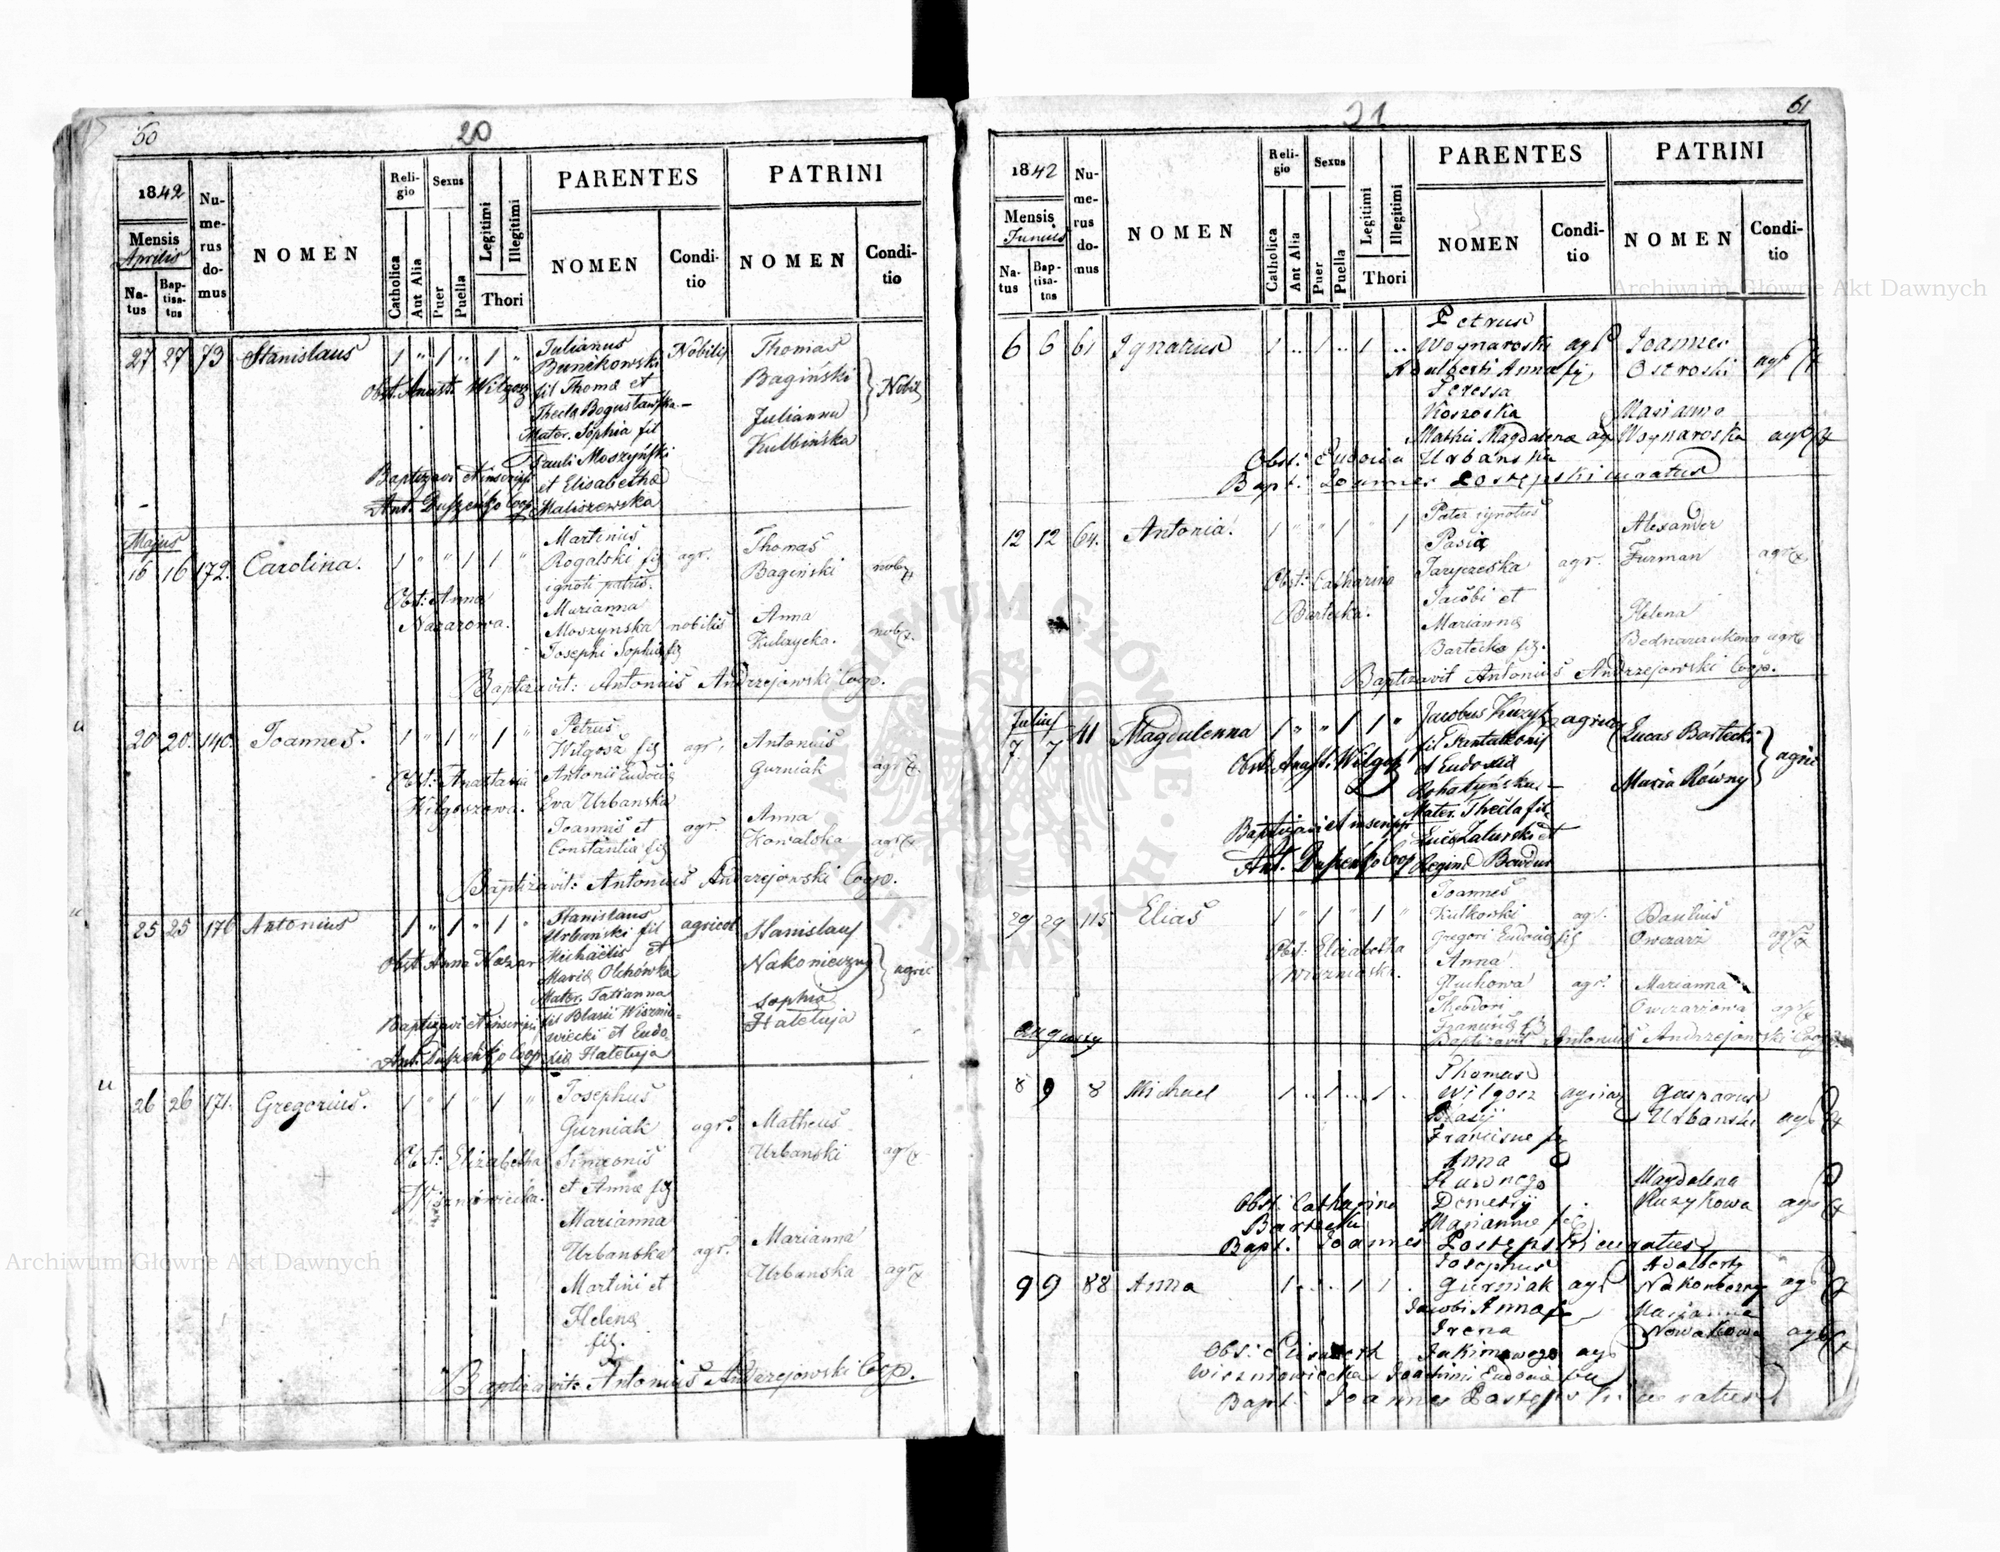 60
20
1842
Mensis
Aprilis
Natus
Baptisatus
Numerus domus
NOMEN
Religio
Catholica
Aut Alia
Sexus
Puer
Puella
Legitimi
Illegitimi
Thori
PARENTES
NOMEN
Conditio
PATRINI
NOMEN
Conditio
27 27 73 Stanislaus 1 " 1 " 1 "
Julianus
Bunikowski
fil Thomæ et
Thecla Bogusławska
Mater. Sophia fil
Pauli Moszyński
et Elisabethæ
Maliszewska
Nobilis
Thomas
Bagiński
Julianna
Kulbińska
Nobil
Obst. Anast. Wilgosz
Baptizavi et inscripsi
Ant. Duszeńko Coop
Majus
16 16 172. Carolina. 1 " " 1 1 "
Martinus
Rogalski fil
ignoti patris.
Marianna
Moszyńska
Josephi Sophia fil
agr.
nobilis
Thomas
Bagiński
Anna
Kulzycka.
nob
nob
Obst: Anna
Nazarowa.
Baptizavit: Antonius Andrzejowski Coop.
20 20. 140. Joannes. 1 " 1 " 1 "
Petrus
Wilgosz fil
Antonii Eudocia
Eva Urbanska
Joannis et
Constantia fil
agr.
agr.
Antonius
Gurniak
Anna
Kowalska
agr
agr
Obst: Anastasia
Wilgoszowa.
Baptizavit: Antonius Andrzejowski Coop.
25 25 176 Antonius 1 " 1 " 1 "
Stanislaus
Urbanski fil
Michaelis et
Maria Olchówka
Mater. Tatianna
fil Blasii Wiszniowiecki et Eudoxia
Hałetuja
agricol
Stanislaus
Nakonieczny
Sophia
Hałetuja
agric
Obst Anna Nazar
Baptizavi et inscripsi
Ant. Duszeńko Coop
26 26 171. Gregorius. 1 " 1 " 1 "
Josephus
Gurniak
Simeonis
et Annæ fil
Marianna
Urbanska
Martini et
Helena
fil.
agr.
agr.
Matheus
Urbanski
Marianna
Urbanska
agr
agr
Obst: Elizabetha
Baptizavit Antonius Andrzejowski Coop.
61
21
1842
Mensis
Junius
Natus
Baptisatus
Numerus domus
NOMEN
Religio
Catholica
Aut Alia
Sexus
Puer
Puella
Legitimi
Illegitimi
Thori
PARENTES
NOMEN
Conditio
PATRINI
NOMEN
Conditio
6 6 61 Ignatius 1 .. 1 .. 1 ..
Petrus
Woynaroski
Adalberti Anna fil
Teressa
Kososka
Mathii Magdalenæ
agr
Joannes
Ostroski
Marianna
Woynaroska
agr
agr
Obst: Eudocia Urbanska
Bapt: Joannes Postępski curatus
12 12 64. Antonia. 1 " " 1 " 1
Pater ignotus
Pasia
Jacobi et
Marianna
Bartecka fil.
agr.
Alexander
Furman
Helena
Bednarzukowa
agr
agr
Obst: Catharina
Bartecka.
Baptizavit Antonius Andrzejowski Coop.
Julius
7. 7 41 Magdalenna 1 " " 1 1 "
Jacobus Kuzyk
fil Pantaleonis
et Eudoxia
Rohatyńska
Mater. Thecla fil
Lucæ Zaturski et
Regina Bawdur
agric
Lucas Bartecki
Maria Równy
agric
Obst. Anast. Wilgosz
Baptizavi et inscripsi
Ant. Duszeńko Coop
29 29 115 Elias 1 " 1 " 1 "
Joannes
Kutkowski
Gregori Eudocia fil
Anna
Hluchowa
Theodori
Francisca fil
agr.
agr.
Paulus
Owczarz
Marianna
Owczarzowa
agr
agr
Obst: Elizabetha
Baptizavit Antonius Andrzejowski Coop.
Augusty
8 9 8 Michael 1 .. 1 .. 1 .
Thomas
Wilgosz
Basij
Franciscæ fil
Anna
Rawnego
Demetrij
Mariannæ fil
agric
Gasparus
Urbanski
Magdalena
Kuzykowa
agr
agr
Obst: Catharina
Bartecka
Bapt: Joannes Postępski curatus
9 9 88 Anna 1 . . 1 1 .
Josephus
Gurniak
Jacobi Anna fil
Irena
Jakimowego
Joachimi Eudoxia fil
agr
agr
Adalberty
Nakonieczny
Marianna
Nowakowa
agr
agr
Obs: Elisabeth
Wiszniowiecka
Bapt: Joannes Postępski curatus
Archiwum Główne Akt Dawnych
Archiwum Główne Akt Dawnych
ARCHIWUM GŁÓWNE AKT DAWNYCH